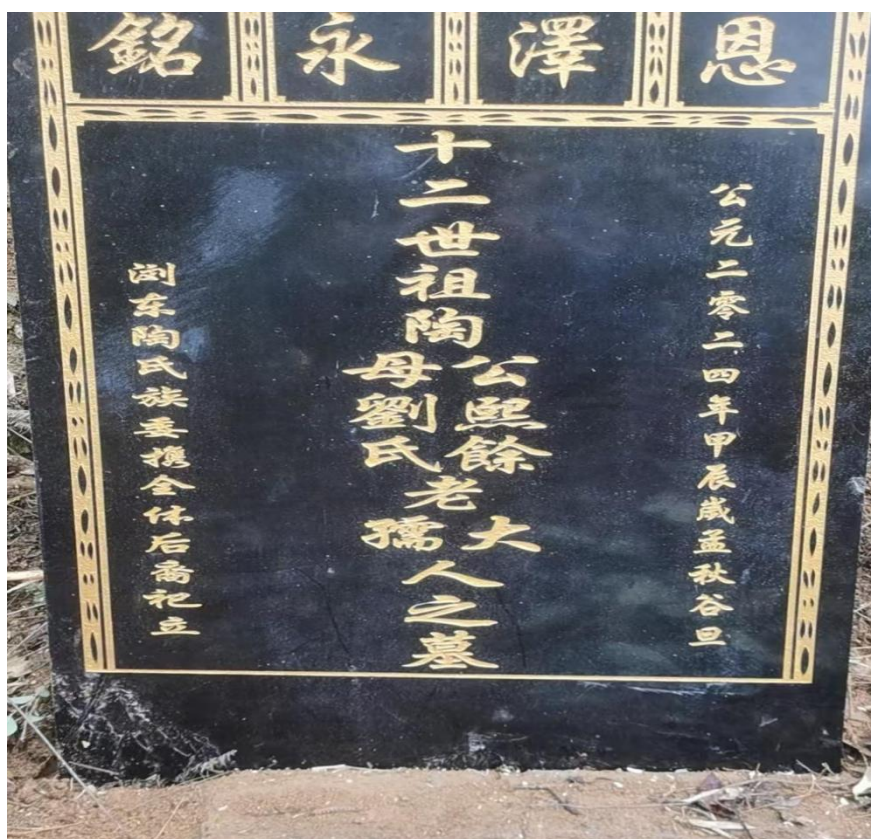 恩澤永銘
公元二零二四年甲辰歲孟秋谷旦
十二世祖陶
公熙餘
母劉氏
老
大
孺
人之墓
浏东陶氏族委携全体后裔祀立